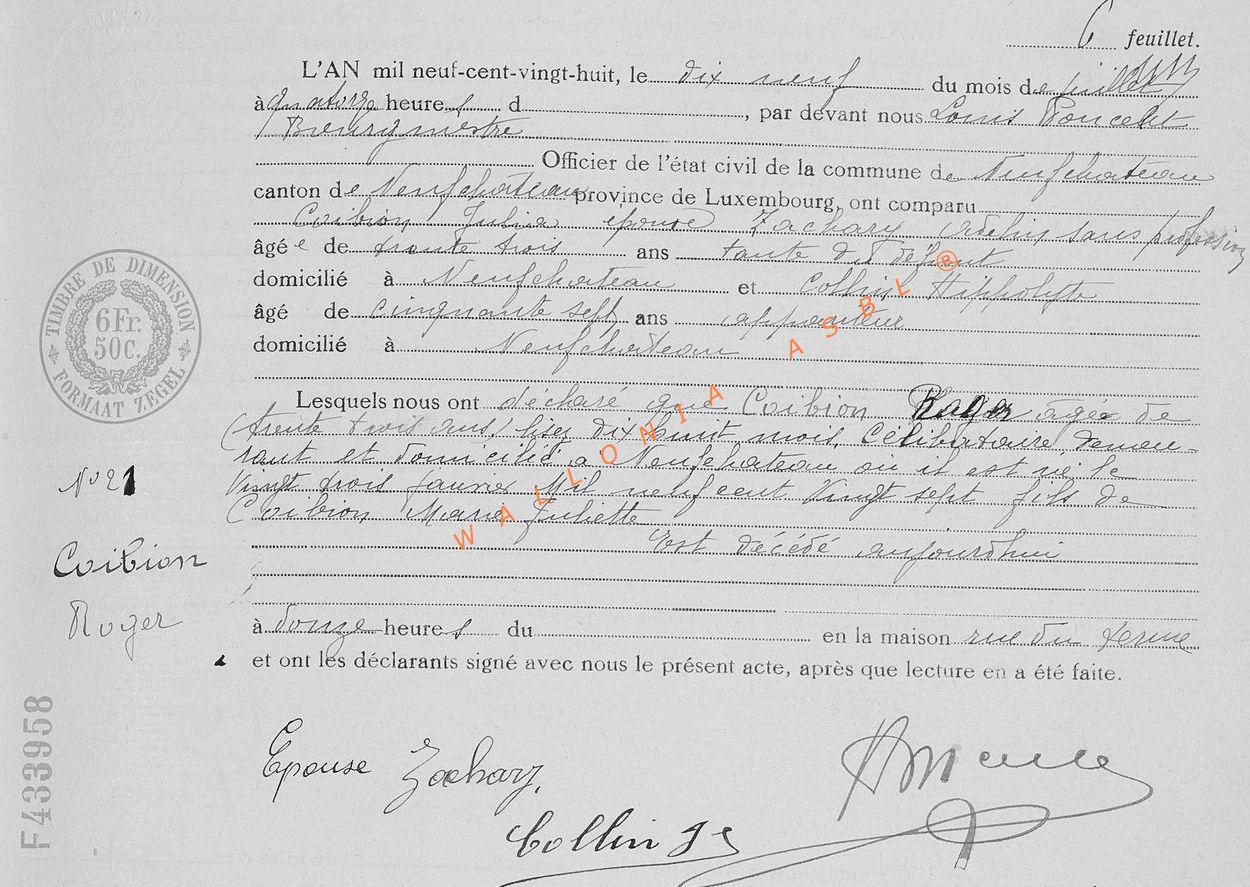 6 feuillet.
L'AN mil neuf-cent-vingt-huit, le dix neuf du mois de juillet
à quatorze heures d , par devant nous Louis Poncelet
Bourgmestre
Officier de l'état civil de la commune de Neufchateau
canton de Neufchateau province de Luxembourg, ont comparu
Coibion Julia épouse Zachary sans profession
âgée de trente trois ans tante du défunt
domicilié à Neufchateau et Collin Hippolyte
âgé de cinquante sept ans appariteur
domicilié à Neufchateau
Lesquels nous ont déclaré que Coibion Roger âgé de
trente trois ans, lisez dix huit mois, Célibataire, demeu-
rant et domicilié à Neufchateau où il est né le
Vingt trois janvier Mil neuf cent Vingt sept fils de
Coibion Marie Juliette
Est décédé aujourdhui
à douze heures du en la maison rue du
et ont les déclarants signé avec nous le présent acte, après que lecture en a été faite.
TIMBRE DE DIMENSION
6 Fr.
50 C.
FORMAAT ZEGEL
N° 21
Coibion
Roger
F433958
Epouse Zachary,
Collin
WALLONIA ASBL ®